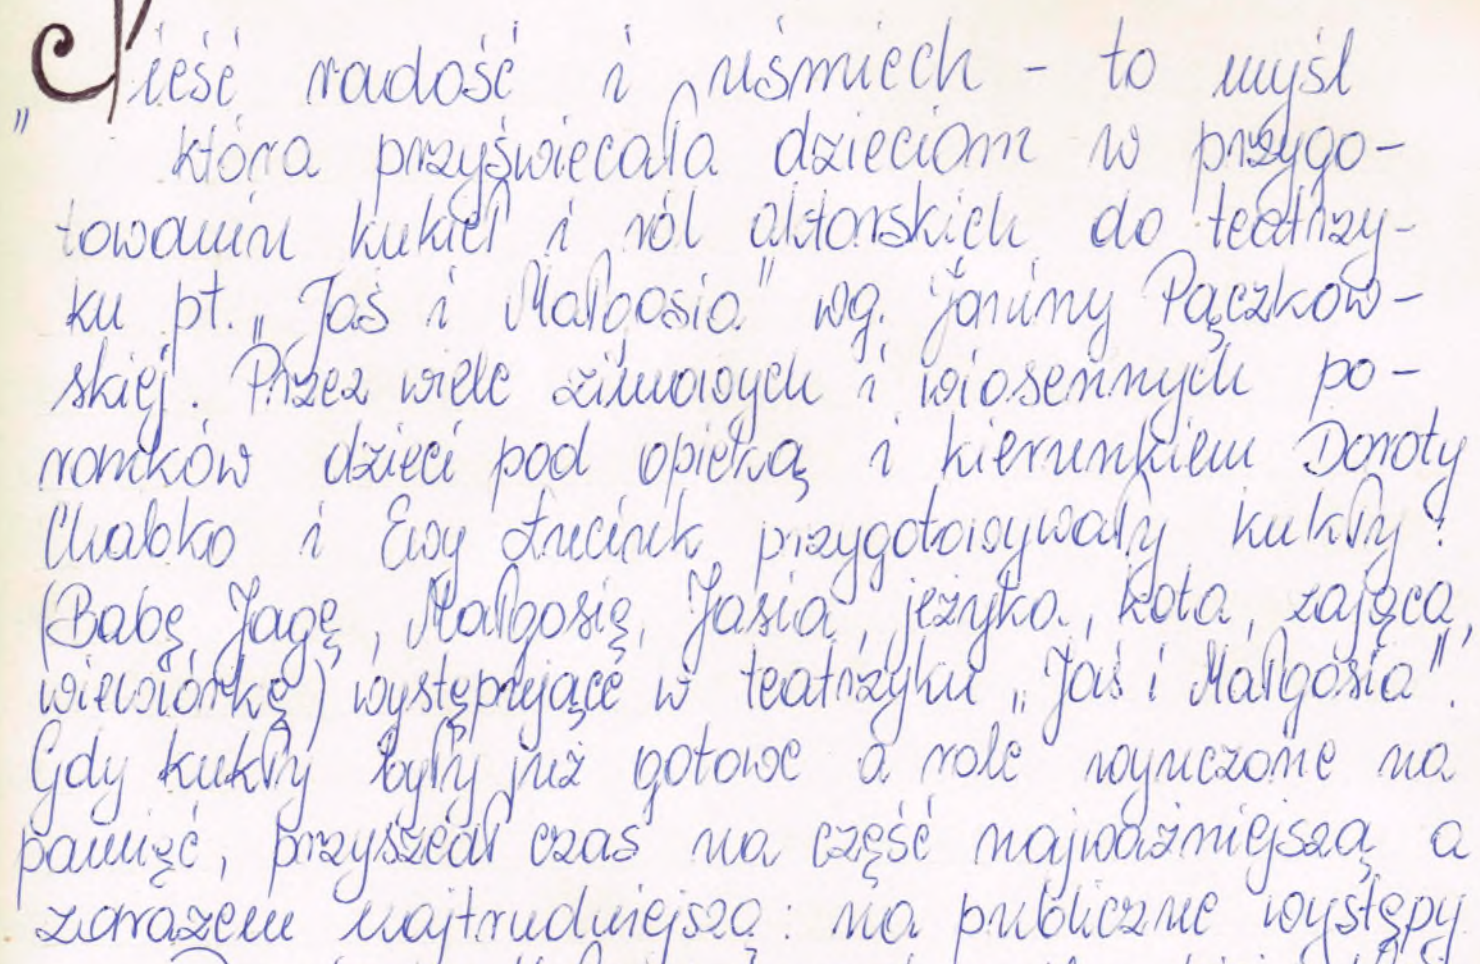 „Nieść radość i uśmiech - to myśl
która przyświecała dzieciom w przygo-
towaniu kukieł i ról aktorskich do teatrzy-
ku pt. „Jaś i Małgosia" wg. Janiny Pączkow-
skiej. Przez wiele zimowych i wiosennych po-
ranków dzieci pod opieką i kierunkiem Doroty
Chabko i Ewy przygotowywały kukły:
(Babę Jagę, Małgosię, Jasia, jeżyka, kota, zająca,
wiewiórkę) występujące w teatrzyku „Jaś i Małgosia".
Gdy kukły były już gotowe a role wyuczone na
pamięć, przyszedł czas na część najważniejszą a
zarazem najtrudniejszą: na publiczne występy